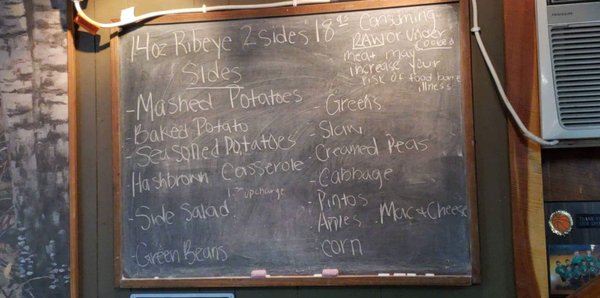 14oz Ribeye 2 Sides 18.95
Consuming
RAW or Under
Cooked
meat may
increase your
risk of food borne
illness
Sides
- Mashed Potatoes
Baked Potato
- Seasoned Potatoes
Hashbrown Casserole
upcharge
- Side Salad
- Green Beans
- Greens
- Slaw
Creamed Peas
- Cabbage
- Pintos
Apples - Mac & Cheese
- Corn